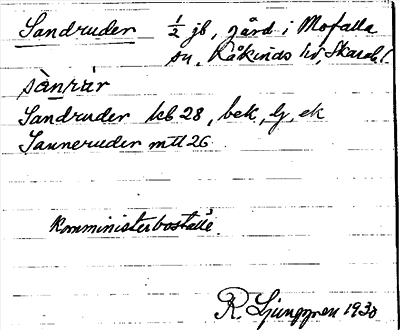 Sandruder ½ jb, gård i Mofalla
sn, Kåkinds hd, Skarab l.
sànrúr
Sandruder kb 28, bek, lj, ek
Sanneruder mtl 26
Komministerboställe.
R. Ljunggren 1930